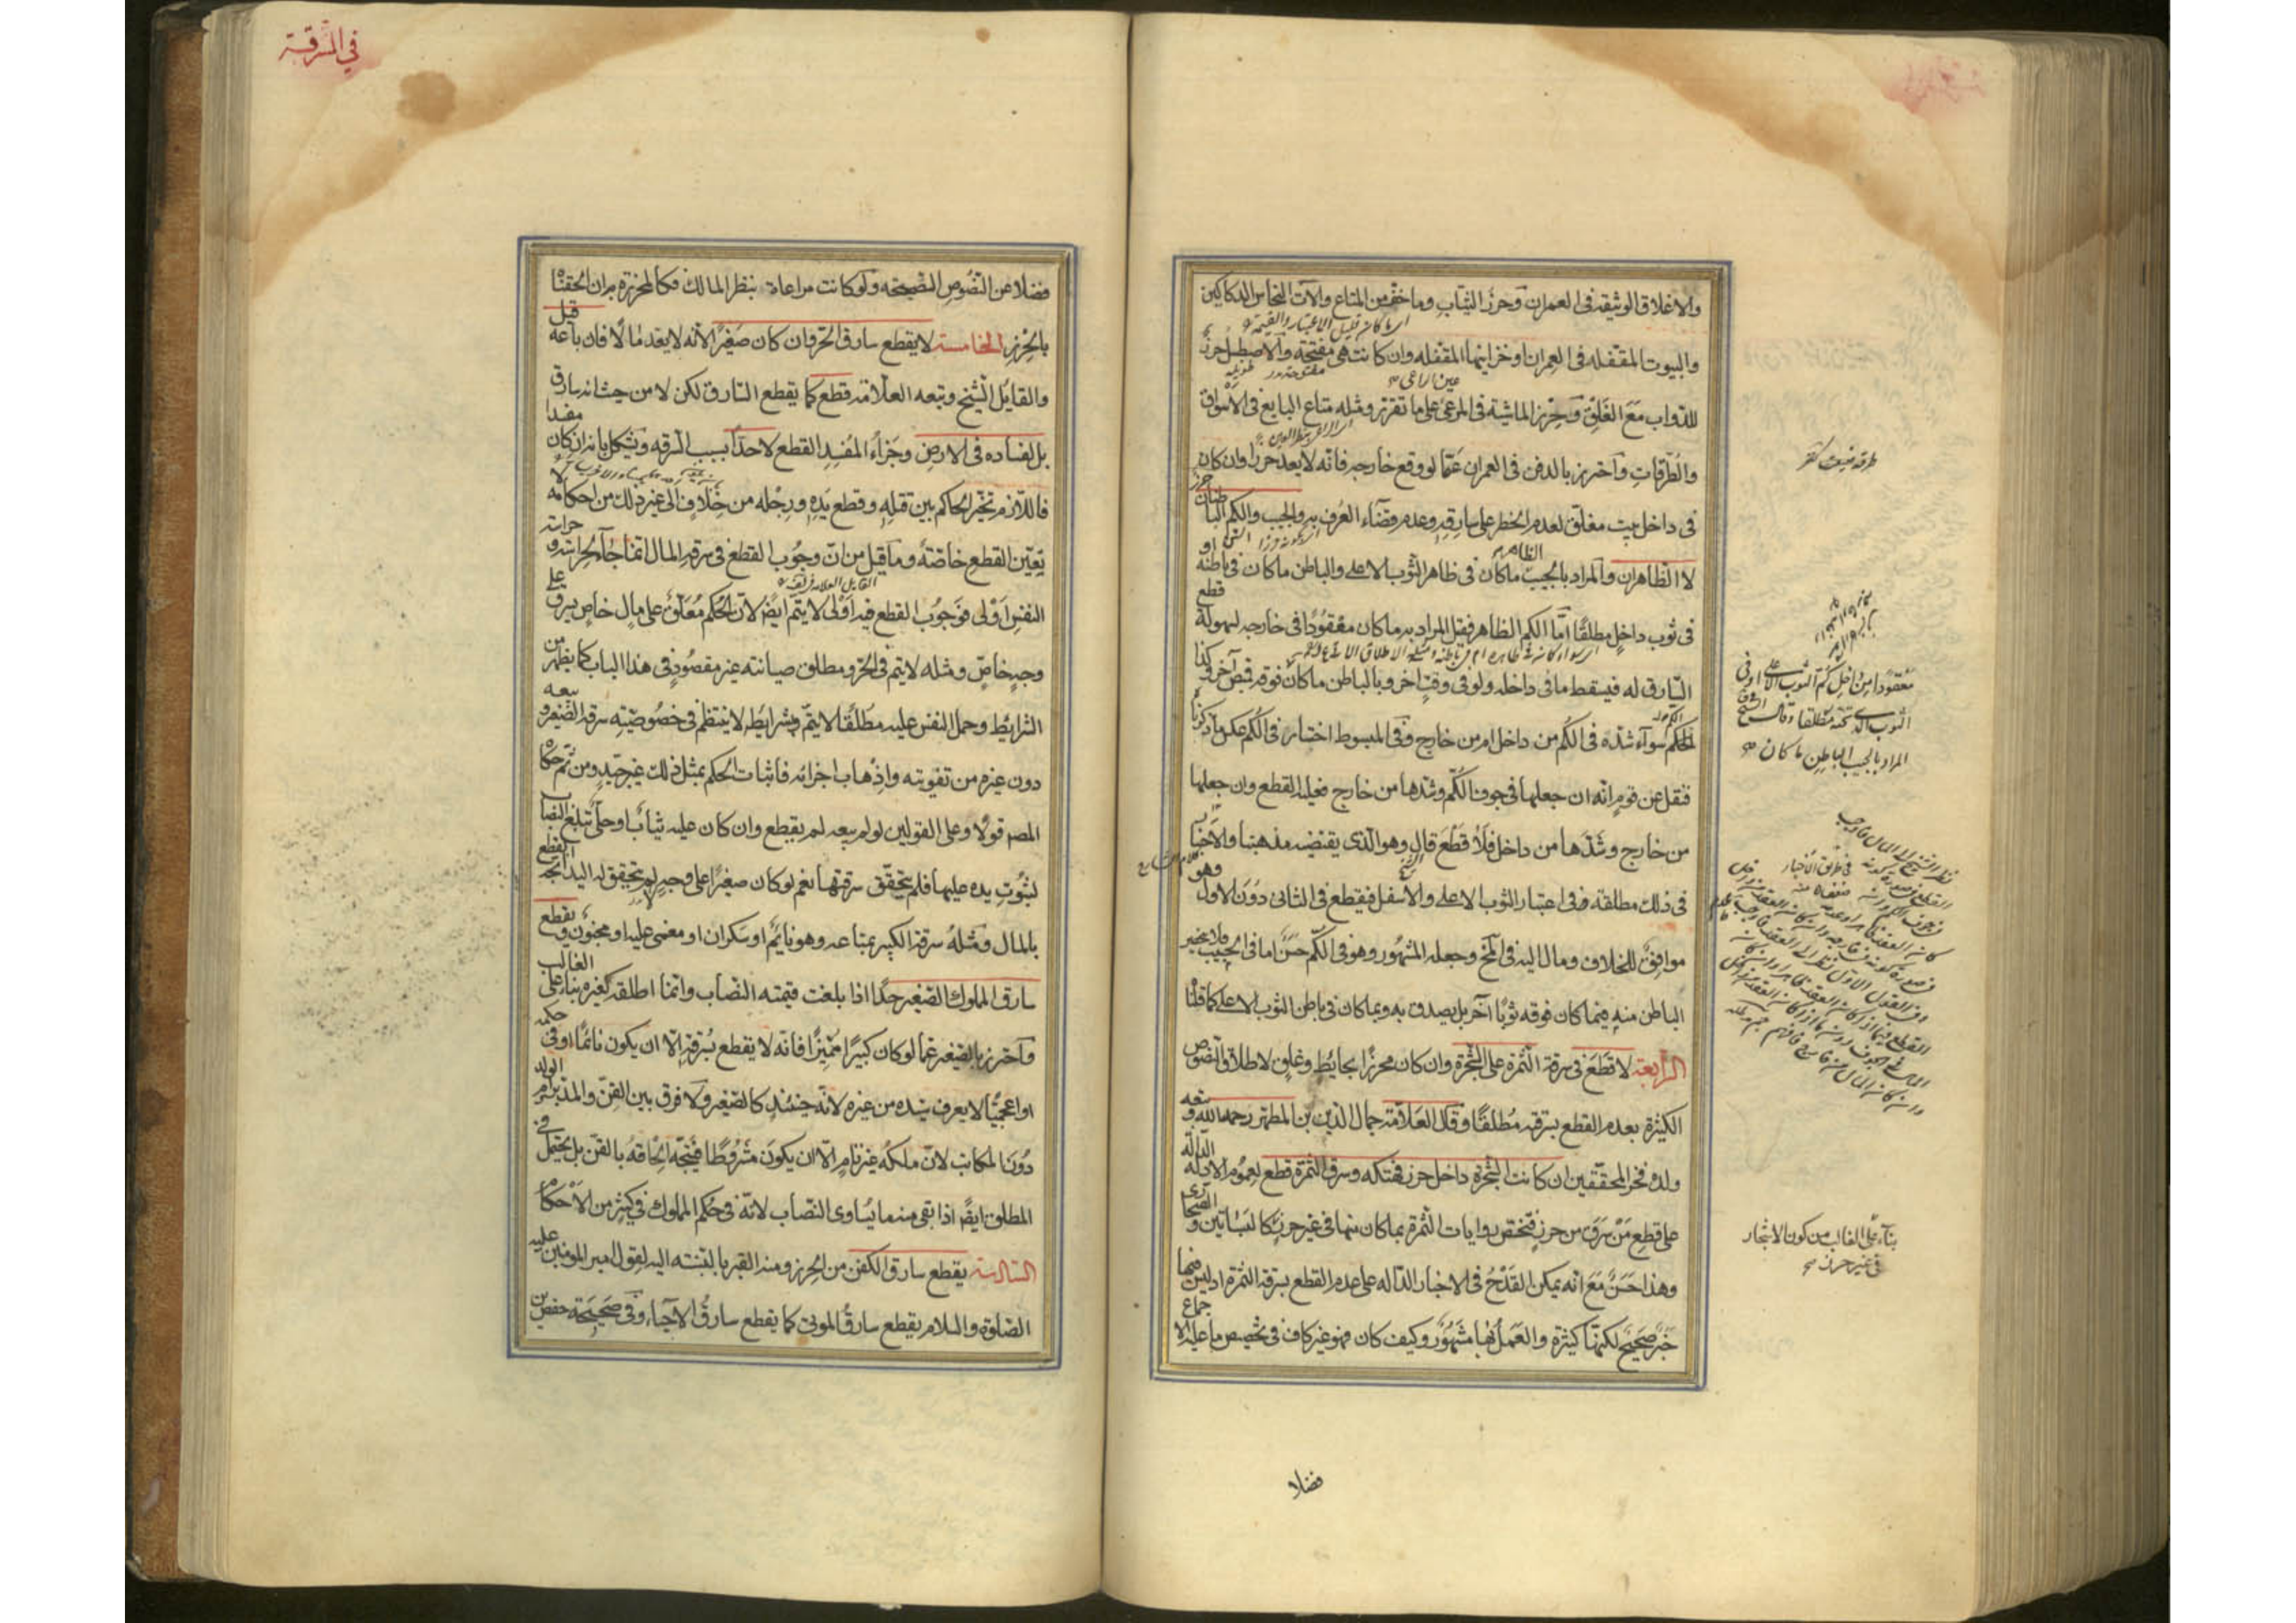 والاغلاق الوثيقه فى العمران وحرز الثياب وما خف من المتاع والآت النحاس الدكاكين
والبيوت المقفله فى العمران او خزاينها المقفله وان كانت هى مفتحة والاصطبل حرز
للدواب مع الغلق وحرز الماشية فى المرعى على ما تقرر ومثله متاع البايع فى الاسواق
والطرقات واحترز بالدفن فى العمران عما لو وقع خارجه فانه لا يعد حرزا وان كان
فى داخل بيت مغلق لعدم الخطر على سارقه وعدم قضاء العرف به والجيب والكم الباطنان حرز
لا الظاهران والمراد بالجيب الظاهر ما كان فى ظاهر الثوب الاعلى والباطن ما كان فى باطنه او
فى ثوب داخل مطلقا اما الكم الظاهر فقيل المراد به ما كان معقودا فى خارجه لسهولة قطع
السارق له فيسقط ما فى داخله ولو فى وقت اخر وبالباطن ما كان فوقه قميص آخر وكذا
الحكم سوآء شده فى الكم من داخل ام من خارج وفى المبسوط اختار فى الكم عكس ما ذكرناه
فنقل عن قوم انه ان جعلها فى جوف الكم وشدها من خارج فعليه القطع وان جعلها
من خارج وشدها من داخل فلا قطع قال وهو الذى يقتضيه مذهبنا والاخبار
فى ذلك مطلقة وفى اعتبار الثوب الاعلى والاسفل فيقطع فى الثانى دون الاول وهو
موافق للخلاف ومال اليه فى المخ وجعله المشهور وهو فى الكم حسن اما فى الجيب فلا ينحصر
الباطن منه فيما كان فوقه ثوبا آخر بل يصدق به وبما كان فى باطن الثوب الاعلى كما قلنا
الرابعة لا قطع فى سرقة الثمرة على الشجرة وان كان محرزا بحايط وغلق لاطلاق النصوص
الكثيرة بعدم القطع بسرقته مطلقا وقال العلامة جمال الدين بن المطهر رحمه الله وتبعه
ولده فخر المحققين ان كانت الشجرة داخل حرز فهتكه وسرق الثمرة قطع لعموم الادلة الدالة
على قطع من سرق من حرز فتختص روايات الثمرة بما كان منها فى غير حرز كالبساتين والصحارى
وهذا حسن مع انه يمكن القدح فى الاخبار الدالة على عدم القطع بسرقة الثمرة اذ ليس فيها
خبر صحيح لكنها كثيرة والعمل بها مشهور وكيف كان فهو غير كاف فى تخصيص ما عليه الاجماع
فضلا
معقودا من داخل كم الثوب الاعلى او فى
الثوب الذى تحته مطلقا وقال الشيخ
المراد بالجيب الباطن ما كان
بناء على الغالب من كون الاشجار
فى غير حرز
فى السرقة
فضلا عن النصوص الصحيحه ولو كانت مراعاة بنظر المالك فكالمحرزة به ان الحقناه
بالحرز الخامسة لا يقطع سارق الحر وان كان صغيرا لانه لا يعد مالا فان باعه قيل
والقايل الشيخ وتبعه العلامة قطع كما يقطع السارق لكن لا من حيث انه سارق
بل لفساده فى الارض وجزاء المفسد القطع لا حدا بسبب السرقه ويشكل بانه ان كان مفسدا
فاللازم تخير الحاكم بين قتله وقطع يده ورجله من خلاف الى غير ذلك من احكامه لا
تعين القطع خاصة وما قيل من ان وجوب القطع فى سرقة المال انما جاء لحراسته وحراسة
النفس اولى فوجوب القطع فيه اولى لا يتم ايضا لان الحكم معلق على مال خاص يسرق على
وجه خاص ومثله لا يتم فى الحر ومطلق صيانته غير مقصود فى هذا الباب كما يظهر من
الشرايط وحمل النفس عليه مطلقا لا يتم وشرايطه لا ينتظم فى خصوصيته سرقة الصغير وبيعه
دون غيره من تفويته واذهاب اجزائه فاثبات الحكم بمثل ذلك غير جيد ومن ثم حكاه
المصـ قولا وعلى القولين لو لم يبعه لم يقطع وان كان عليه ثياب او حلى تبلغ النصاب
لثبوت يده عليها فلم يتحقق سرقتهما نعم لو كان صغيرا على وجه لا يتحقق له اليد اتجه القطع
بالمال ومثله سرقة الكبير بمتاعه وهو نايم او سكران او مغمى عليه او مجنون ويقطع
سارق المملوك الصغير حدا اذا بلغت قيمته النصاب وانما اطلقه كغيره بناء على الغالب
واحترز بالصغير عما لو كان كبيرا مميزا فانه لا يقطع بسرقته الا ان يكون نائما او فى حكمه
او اعجميا لا يعرف سيده من غيره لانه حينئذ كالصغير ولا فرق بين القن والمدبر وام الولد
دون المكاتب لان ملكه غير تام الا ان يكون مشروطا فيتجه الحاقه بالقن بل يحتمل فى
المطلق ايضا اذا بقى منه ما يساوى النصاب لانه فى حكم المملوك فى كثير من الاحكام
السادسة يقطع سارق الكفن من الحرز ومنه القبر بالنسبة اليه لقول امير المومنين عليه
الصلوة والسلام يقطع سارق الموتى كما يقطع سارق الاحياء وفى صحيحة حفص بن